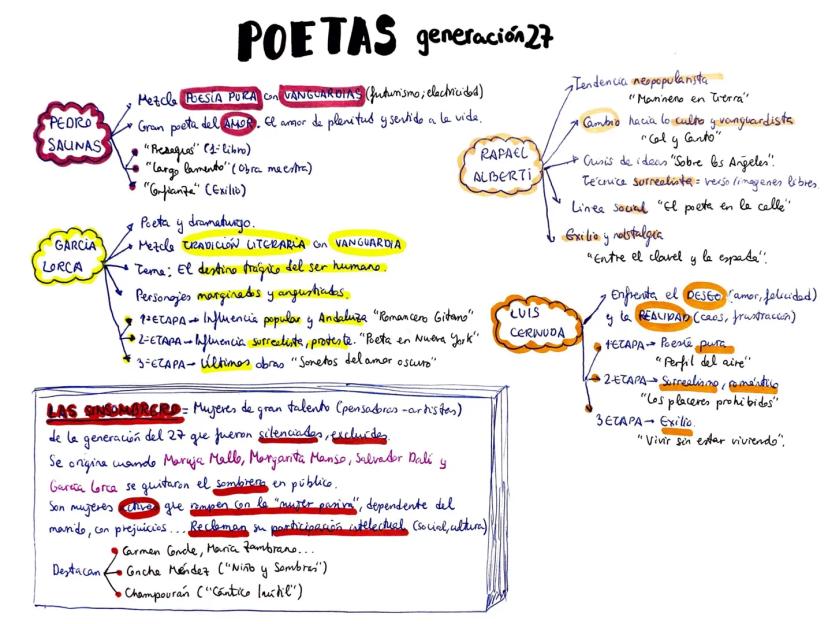 POETAS generación 27
PEDRO
SALINAS
Mezcla POESÍA PURA con VANGUARDIAS (futurismo; electricidad)
Gran poeta del AMOR. El amor da plenitud y sentido a la vida.
"Presagios" (1º libro)
"Largo lamento" (Obra maestra)
"Confianza" (Exilio)
GARCÍA
LORCA
Poeta y dramaturgo.
Mezcla TRADICIÓN LITERARIA con VANGUARDIA
Tema: El destino trágico del ser humano.
Personajes marginados y angustiados.
1ª ETAPA → Influencia popular y Andaluza "Romancero Gitano"
2ª ETAPA → Influencia surrealista, protesta. "Poeta en Nueva York"
3ª ETAPA → Últimas obras "Sonetos del amor oscuro"
RAFAEL
ALBERTI
Tendencia neopopularista
"Marinero en tierra"
Cambio hacia lo culto y vanguardista
"Cal y Canto"
Crisis de ideas "Sobre los Ángeles".
Técnica surrealista = verso/imágenes libres.
Línea social "El poeta en la calle"
Exilio y nostalgia
"Entre el clavel y la espada".
LUIS
CERNUDA
Enfrenta el DESEO (amor, felicidad)
y la REALIDAD (caos, frustración)
1 ETAPA → Poesía pura
"Perfil del aire"
2 ETAPA → Surrealismo, romántico
"Los placeres prohibidos"
3 ETAPA → Exilio.
"Vivir sin estar viviendo".
LAS SINSOMBRERO = Mujeres de gran talento (pensadoras - artistas)
de la generación del 27 que fueron silenciadas, excluidas.
Se origina cuando Maruja Mallo, Margarita Manso, Salvador Dalí y
García Lorca se quitaron el sombrero en público.
Son mujeres activas que rompen con la "mujer pasiva", dependente del
marido, con prejuicios... Reclaman su participación intelectual (social, cultura)
Destacan
Carmen Conde, María Zambrano...
Concha Méndez ("Niño y Sombras")
Champourán ("Cántico Inútil")